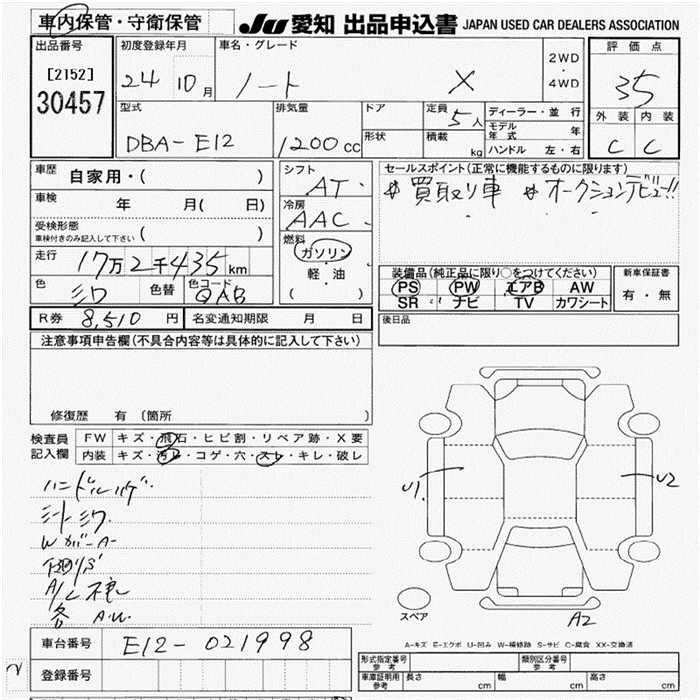 車内保管・守衛保管
JU 愛知 出品申込書 JAPAN USED CAR DEALERS ASSOCIATION
出品番号
[2152]
30457
初度登録年月
24 10 月
車名・グレード
ノート X
2WD
・
4WD
評価点
35
外装 内装
C C
型式
DBA-E12
排気量
1200 cc
ドア
形状
定員
5人
積載
kg
ディーラー・並行
モデル年式 年
ハンドル 左・右
車歴 自家用・( )
車検 年 月( 日)
受検形態
車検付きのみ記入して下さい ( )
走行 17万2千435 km
色 シロ 色替 色コード QAB
シフト
AT
冷房
AAC
燃料
ガソリン
軽・油
( )
セールスポイント(正常に機能するものに限ります)
#買取り車 #オークションデビュー!!
装備品(純正品に限り〇をつけてください)
PS PW エアB AW
SR ナビ TV カワシート
新車保証書
有・無
R券 8,510 円 名変通知期限 月 日
後日品
注意事項申告欄(不具合内容等は具体的に記入して下さい)
修復歴 有 (箇所 )
検査員
記入欄
FW キズ・飛石・ヒビ割・リペア跡・X要
内装 キズ・汚レ・コゲ・穴・スレ・キレ・破レ
ハンドルハゲ
シートシワ
A/C
各 A.U.
U1.
U2
スペア
A2
A-キズ E-エクボ U-凹み W-補修跡 S-サビ C-腐食 XX-交換済
車台番号 E12-021998
登録番号
形式指定番号
参考
類別区分番号
参考
車庫証明用
参考
長さ cm 幅 cm 高さ cm